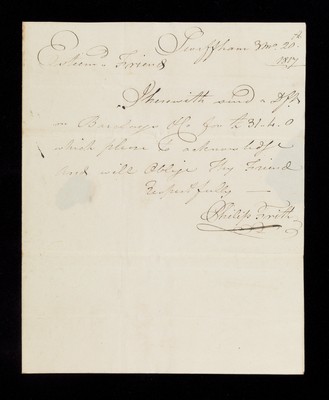 Swaffham 3 Mo. 20th
1817
Esteem'd Friend
I herewith send a Dft
on Barclays & Co for £ 31.4.0
which please to acknowledge
and will Oblige Thy Friend
Respectfully
Philip